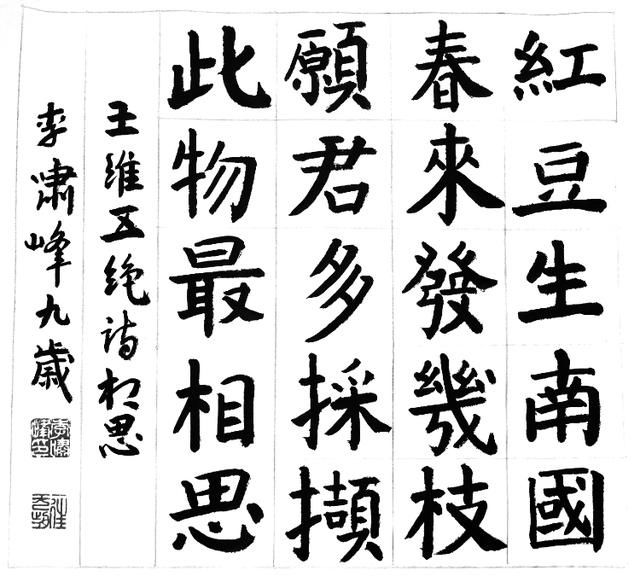 紅豆生南國
春來發幾枝
願君多採擷
此物最相思
王維五絕詩相思
李啸峰九歲